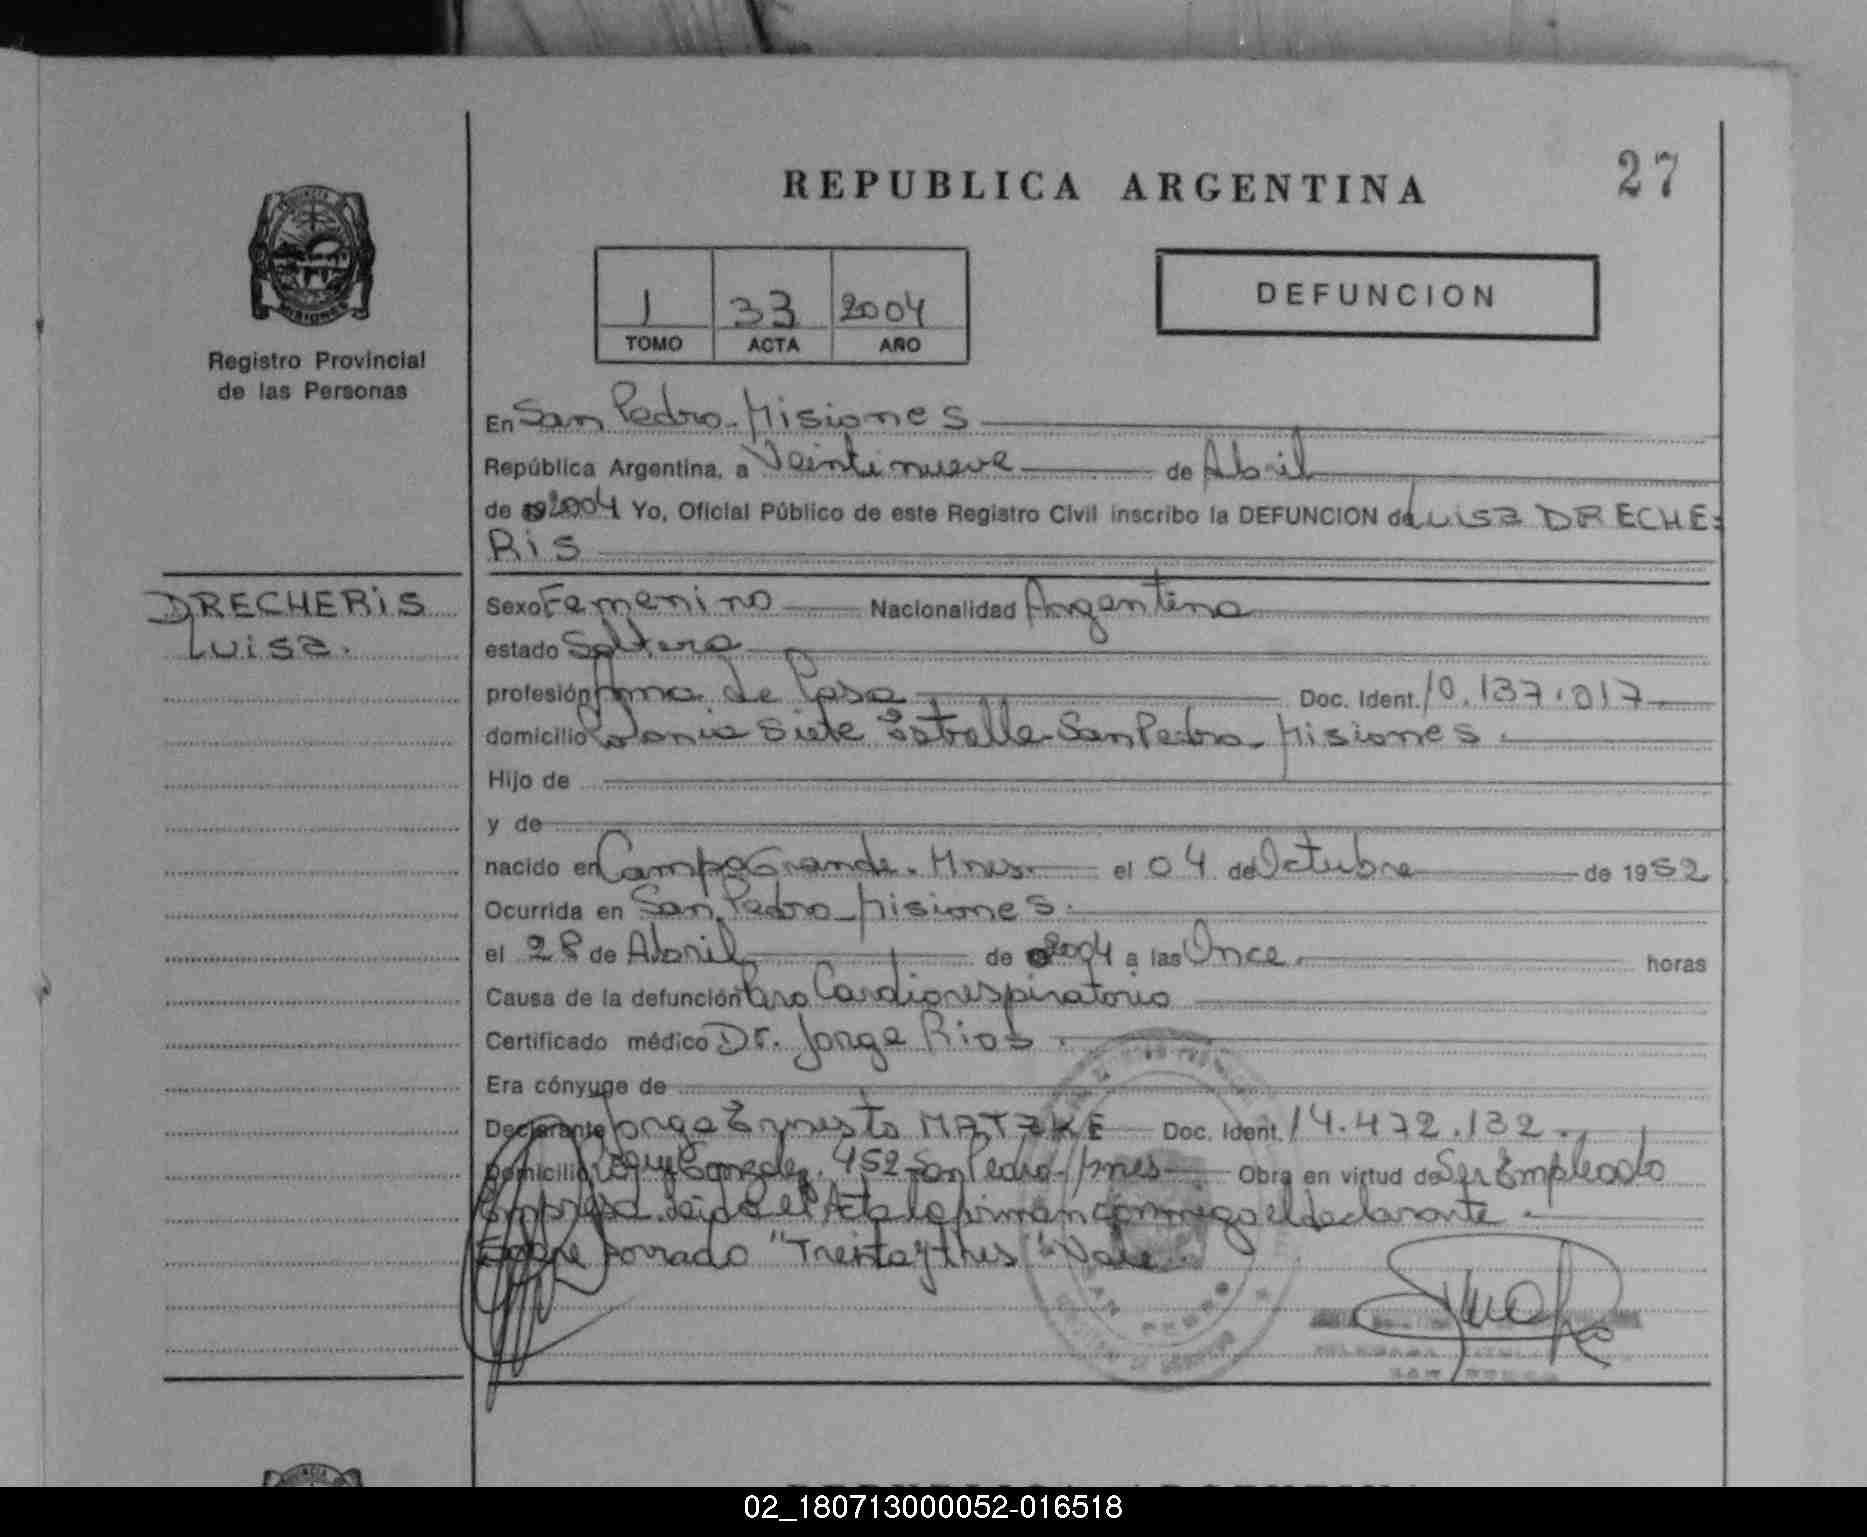 REPUBLICA ARGENTINA
27
1 33 2004
TOMO ACTA AÑO
DEFUNCION
MISIONES
Registro Provincial
de las Personas
En San Pedro - Misiones
República Argentina, a Veintinueve de Abril
de 2004 Yo, Oficial Público de este Registro Civil inscribo la DEFUNCION de LUISA DRECHE-
RIS
DRECHERIS
Luisa.
Sexo Femenino Nacionalidad Argentina
estado Soltera
profesión Ama de Casa Doc. Ident. 10.137.017
domicilio Colonia Siete Estrella - San Pedro - Misiones.
Hijo de
y de
nacido en Campo Grande. Mnes. el 04 de Octubre de 1952
Ocurrida en San Pedro - Misiones.
el 28 de Abril de 2004 a las Once. horas
Causa de la defunción Paro Cardiorespiratorio
Certificado médico Dr. Jorge Rios.
Era cónyuge de
Declarante Jorge Ernesto MATZKE Doc. Ident. 14.472.132.
Domicilio Roque Gonzalez. 452 - San Pedro - Mnes Obra en virtud de Ser Empleado
Empresa. Leida el Acta la firman conmigo el declarante.
borrado "Treinta y tres" Vale.
SAN PEDRO
02_180713000052-016518